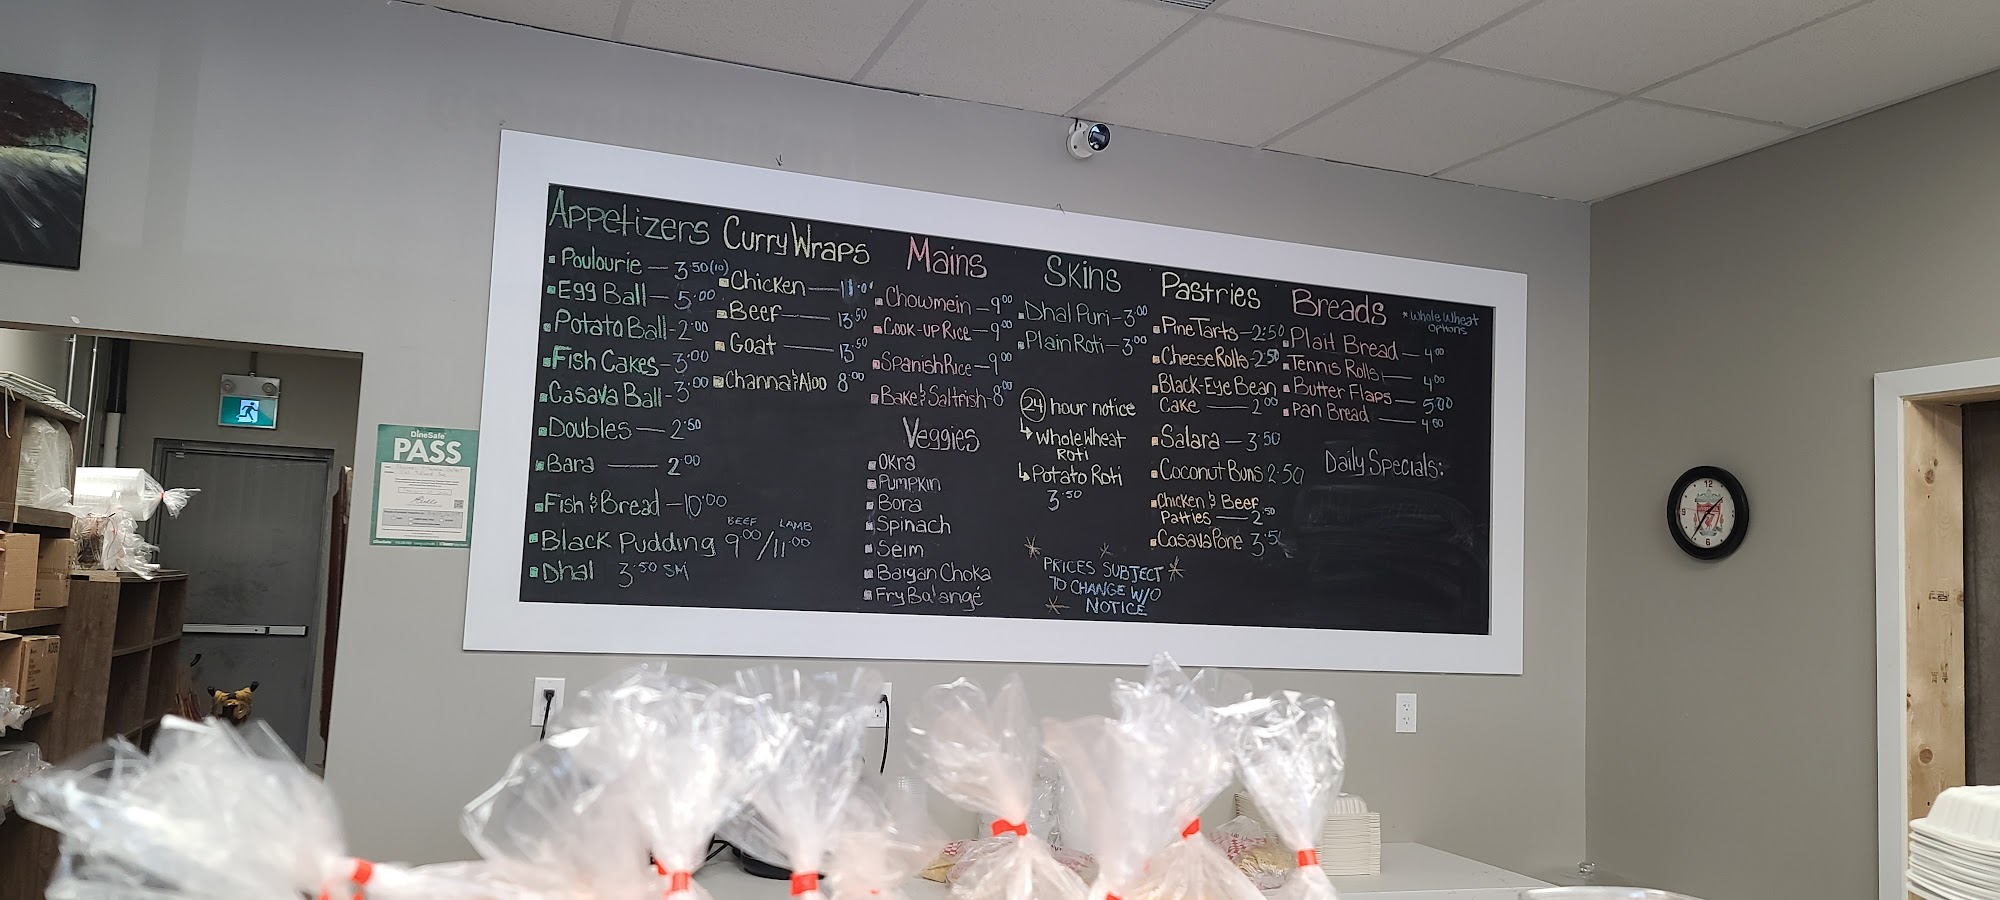 Appetizers
Poulourie — 3.50 (10)
Egg Ball — 5.00
Potato Ball - 2.00
Fish Cakes - 3.00
Casava Ball - 3.00
Doubles — 2.50
Bara — 2.00
Fish & Bread — 10.00
BEEF LAMB
Black Pudding 9.00/11.00
Dhal 3.50 SM
Curry Wraps
Chicken
Beef — 13.50
Goat — 13.50
Channa & Aloo 8.00
Mains
Chowmein — 9.00
Cook-up Rice — 9.00
Spanish Rice — 9.00
Bake & Saltfish - 8.00
Veggies
Okra
Pumpkin
Bora
Spinach
Seim
Baigan Choka
Fry Balangé
Skins
Dhal Puri - 3.00
Plain Roti - 3.00
24 hour notice
Whole Wheat
Roti
Potato Roti
3.50
PRICES SUBJECT
TO CHANGE W/O
NOTICE
Pastries
Pine Tarts — 2.50
Cheese Rolls - 2.50
Black-Eye Bean
Cake — 2.00
Salara — 3.50
Coconut Buns 2.50
Chicken & Beef
Patties — 2.50
Casava Pone 3.5
Breads
*Whole Wheat
Options
Plait Bread — 4.00
Tennis Rolls — 4.00
Butter Flaps — 5.00
Pan Bread — 4.00
Daily Specials:
DineSafe
PASS
12
6